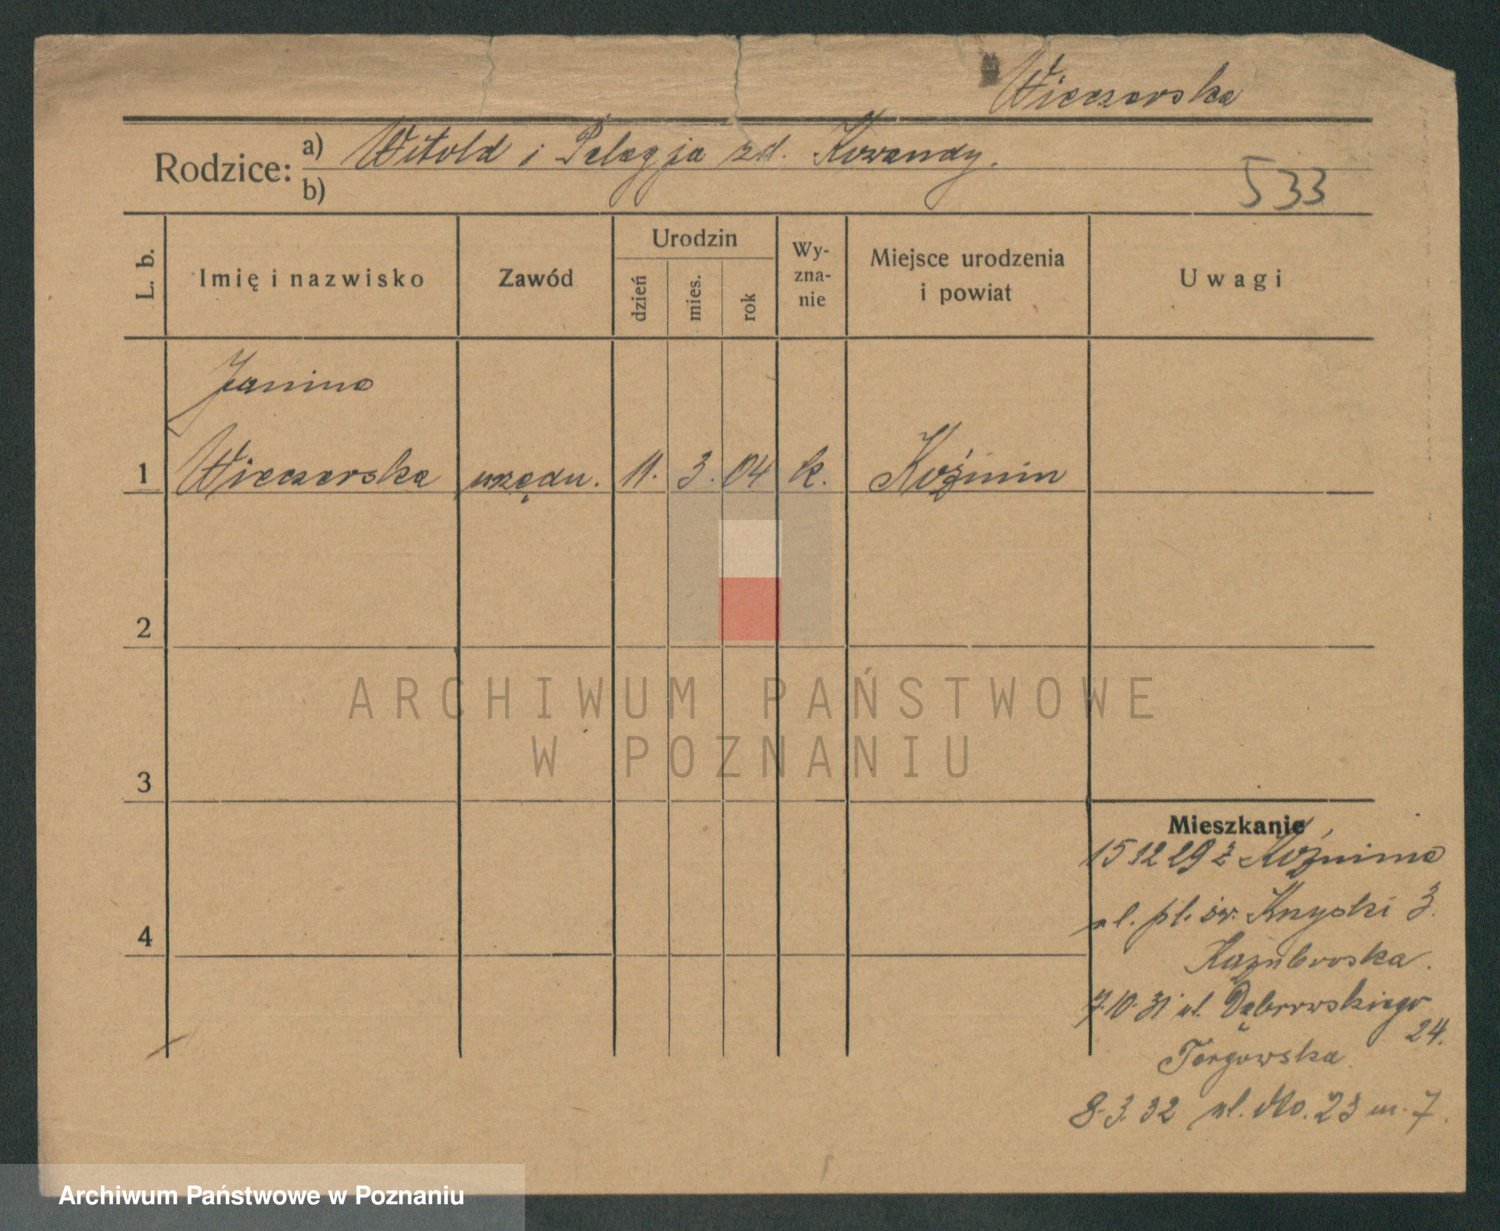 Wieczorska
Rodzice: a) Witold i Pelagja zd.
b)
533
L. b.
Imię i nazwisko
Zawód
Urodzin
dzień
mies.
rok
Wy-
zna-
nie
Miejsce urodzenia
i powiat
Uwagi
Janina
1 Wieczorska urzędn. 11. 3. 04 k. Koźmin
2
ARCHIWUM PAŃSTWOWE
W POZNANIU
3
Mieszkanie
15 12 29 z Koźmina
ul. pl. św. 3.
4
7.10.31 ul. Dąbrowskiego
24.
Targowska
8.3.32 ul. 23 m. 7.
Archiwum Państwowe w Poznaniu